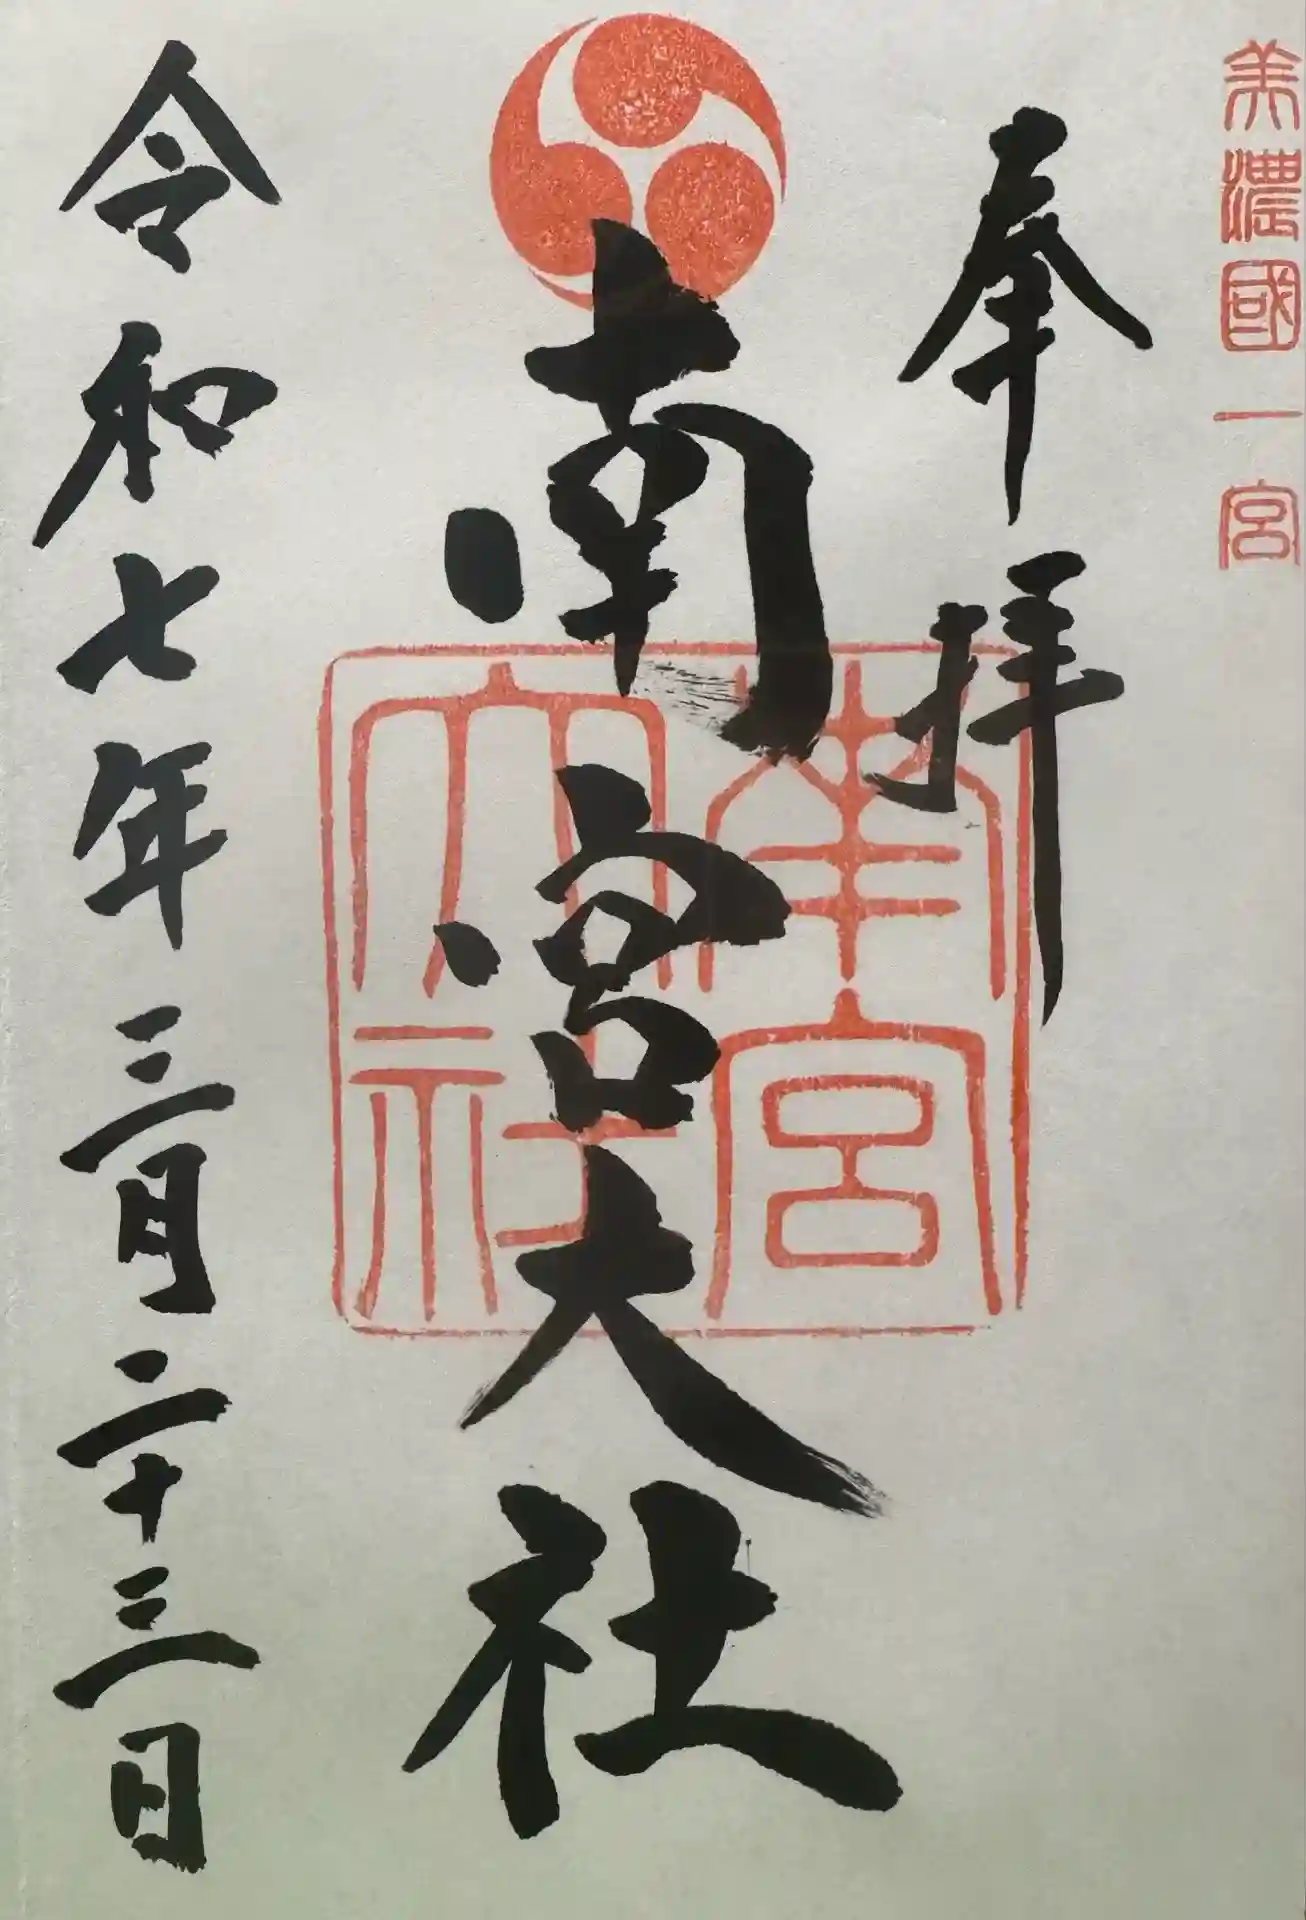 美濃國一宮
奉拝
南宮大社
南宮大社
令和七年三月二十三日